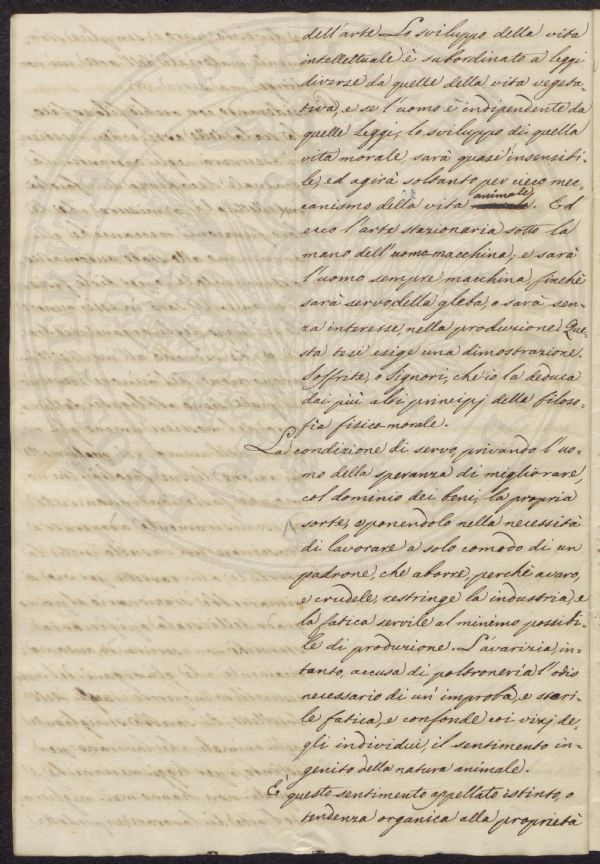 dell'arte Lo sviluppo della vita
intellettuale è subordinato a leggi
diverse da quelle della vita vegeta-
tiva, e se l'uomo è indipendente da
quelle leggi, lo sviluppo di quella
vita morale sarà quasi insensibi-
le, ed agirà soltanto per cieco mec-
canismo della vita animale. Ed
ecco l'arte stazionaria sotto la
mano dell'uomo-macchina; e sarà
l'uomo sempre macchina finchè
sarà servo della gleba, o sarà sen-
za interesse nella produzione. Que-
sta tesi esige una dimostrazione.
Soffrite, o Signori, che io la deduca
dai più alti principj della filoso-
fia fisico-morale.
La condizione di servo, privando l'uo-
mo della speranza di migliorare,
col dominio dei beni, la propria
sorte, e ponendolo nella necessità
di lavorare a solo comodo di un
padrone, che aborre, perchè avaro,
e crudele, restringe la industria, e
la fatica servile al minimo possibi-
le di produzione. L'avarizia, in-
tanto, accusa di poltroneria l'odio
necessario di un'improba, e steri-
le fatica, e confonde coi vizj de-
gli individui, il sentimento in-
genito della natura animale.
È questo sentimento appellato istinto, o
tendenza organica alla proprietà